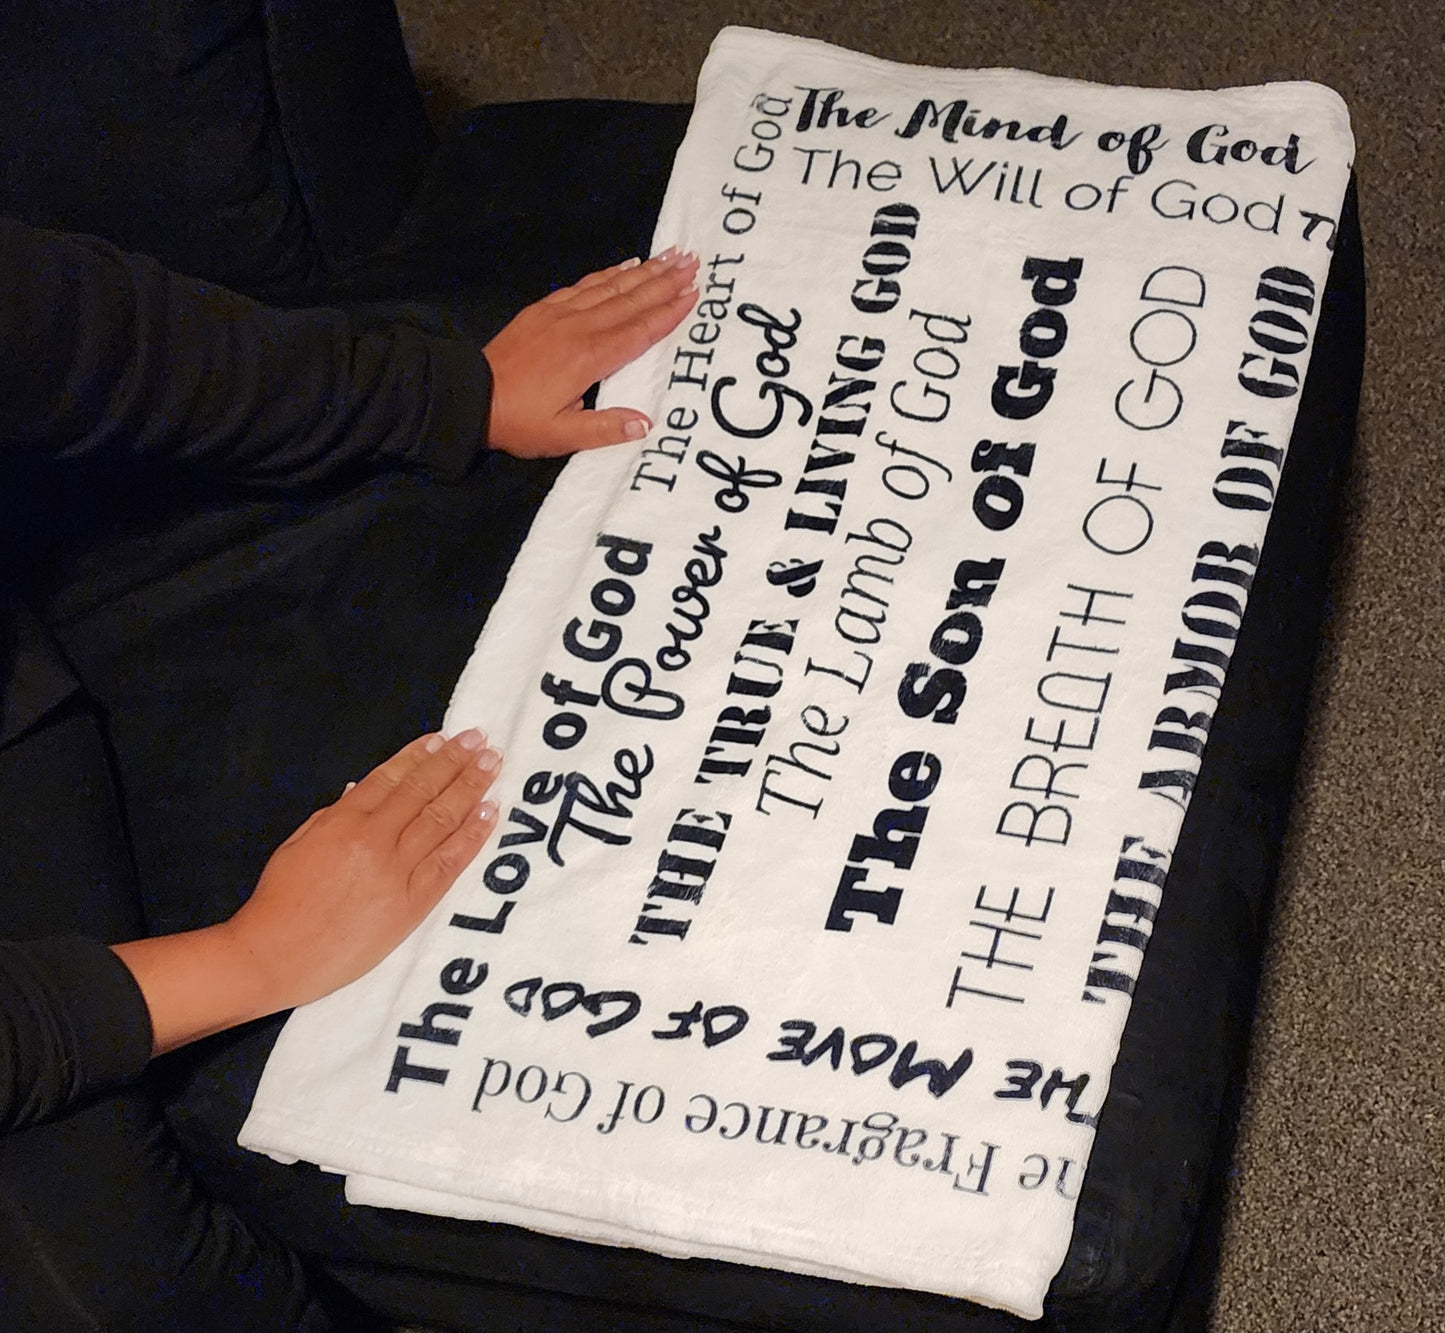 The Mind of God
The Will of God
The Heart of God
The Love of God
The Power of God
THE TRUE & LIVING GOD
The Lamb of God
The Son of God
THE BREATH OF GOD
THE ARMOR OF GOD
THE MOVE OF GOD
Fragrance of God